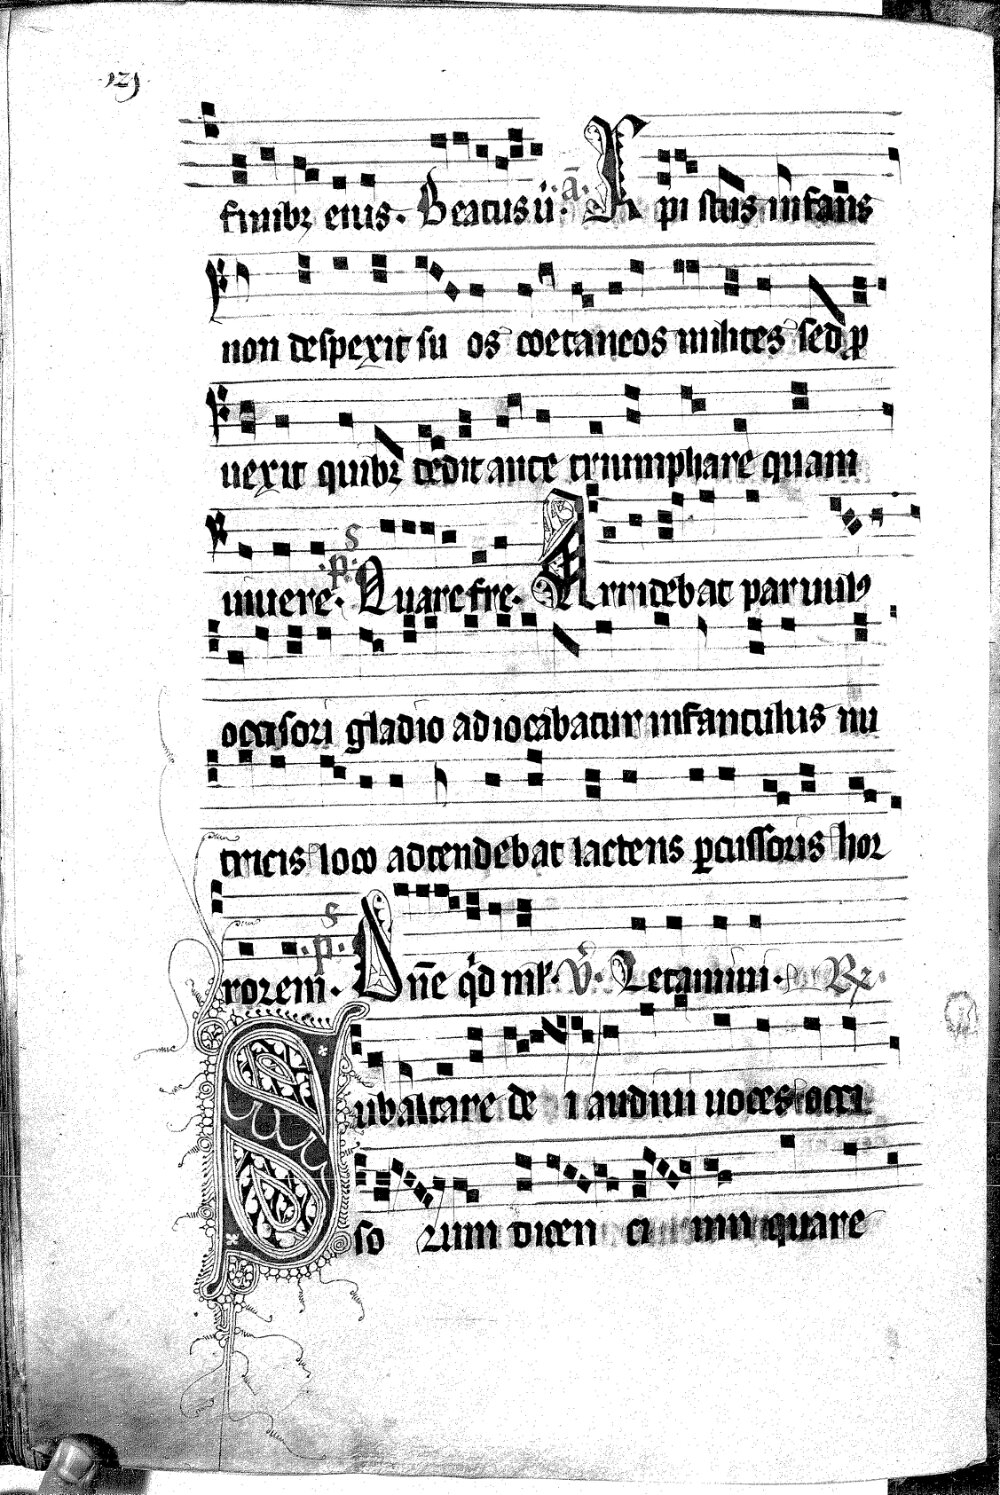 129
finibꝫ eius. Beatus ū. a̅. Xpi stus infans
non despexit su os coetaneos milites sed ꝓ
uexit quibꝫ dedit ante triumphare quam
uiuere. p̅s. Quare fre. Arridebat paruulꝰ
occisori gladio adiocabatur infantulus nu
tricis loco adtendebat lactens ꝑcussoris hor
rorem. p̅s. Dn̅e qd ml̅'. V̅. Letamini. R̅.
Subaltare de i audiui uoces occi
so rum dicen ci um quare